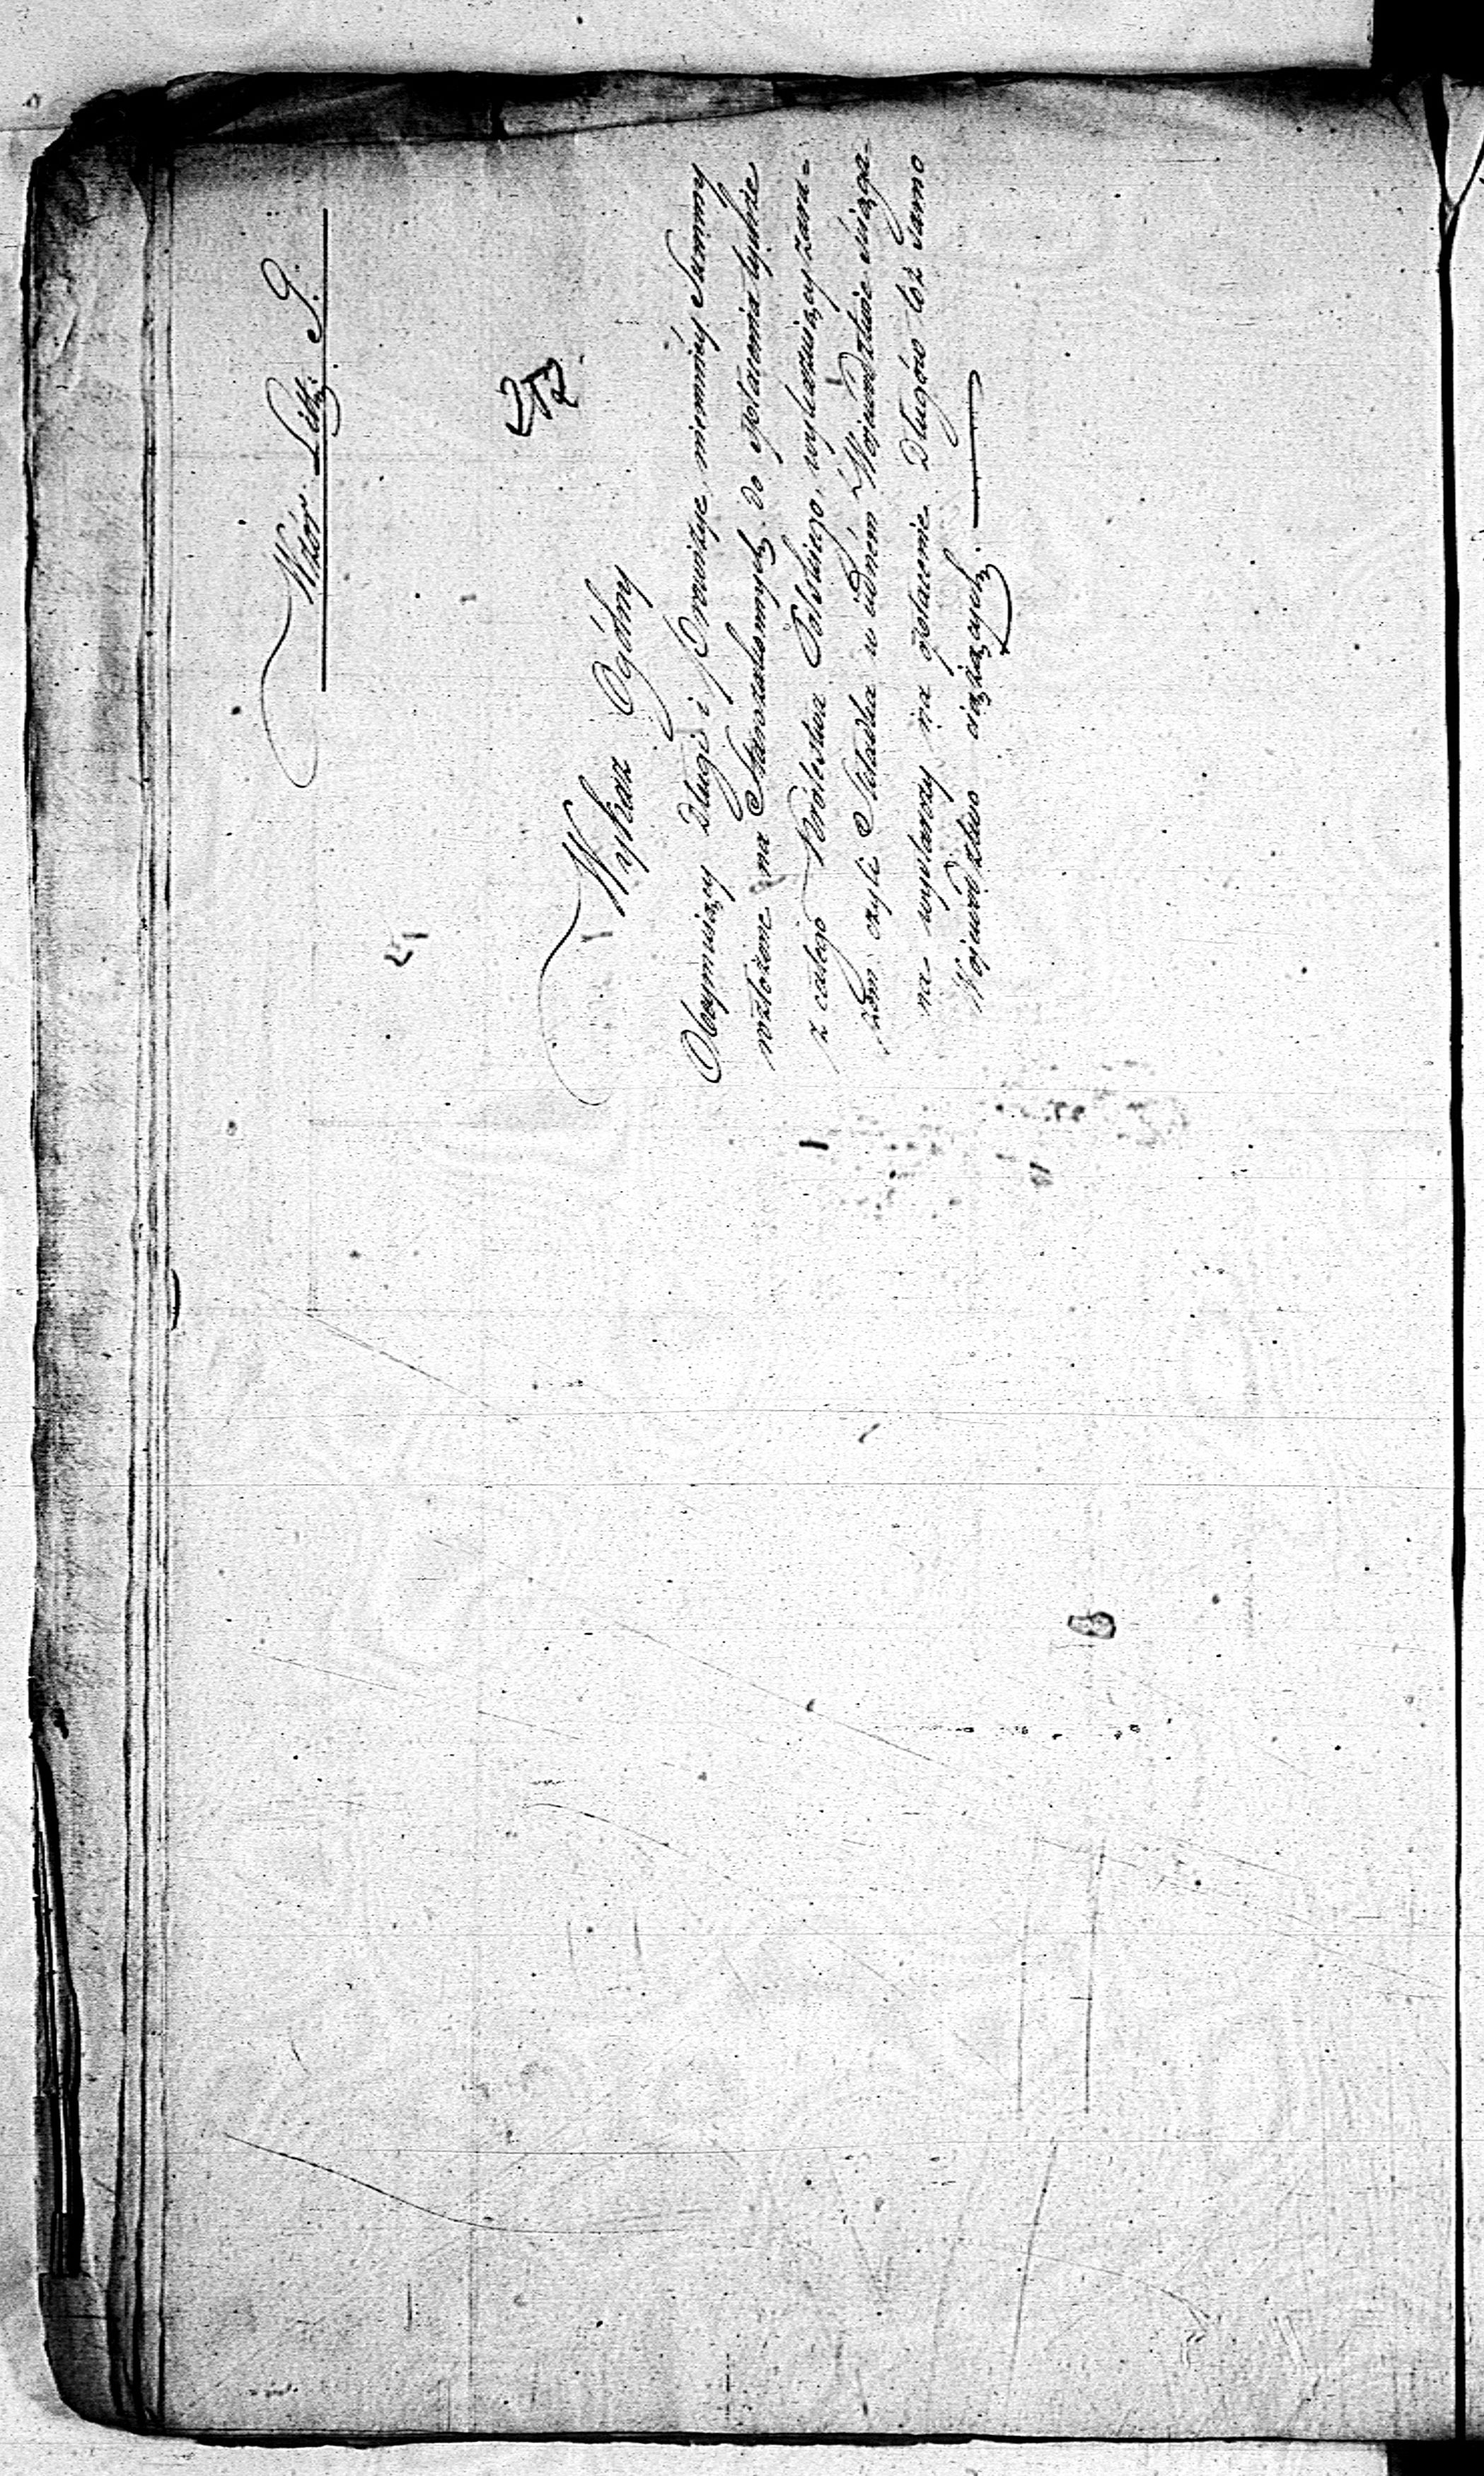 Wzór Litt. G.
252
Wykaz Ogólny
Obeymuiący Długi i Prowizye, niemniéy Summy
rozłożone na Starozakonnych do opłacenia tychże
z całego Królestwa Polskiego, wykazuiący zara-
zem czyli Składka w iedném Województwie ściąga-
na wystarczy na opłacenie Długów toż samo
Województwo ciążących.